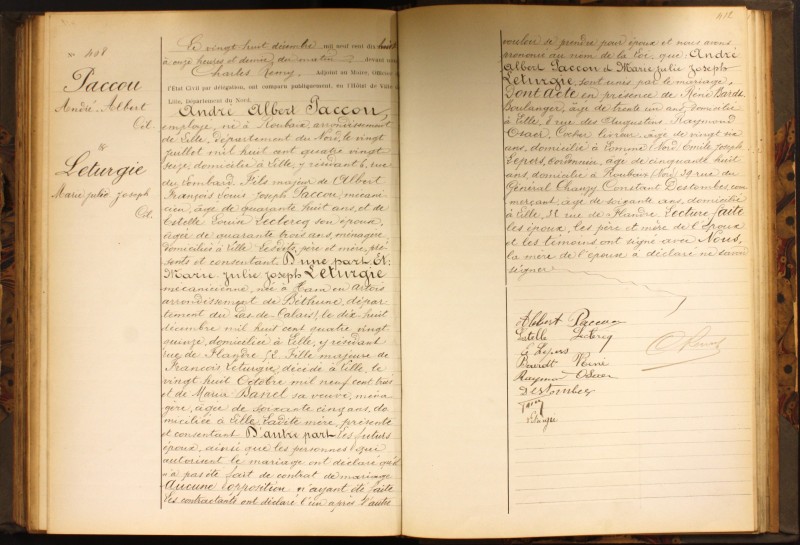 N° 408
Paccou
André Albert
Cél.
&
Leturgie
Marie Julie Joseph
Cél.
Le vingt huit décembre mil neuf cent dix huit
à onze heures et demie du matin devant nous
Charles Remy, Adjoint au Maire, Officier
l'Etat Civil par délégation, ont comparu publiquement, en l'Hôtel de Ville
Lille, département du Nord,
André Albert Paccou,
employé, né à Roubaix, arrondissement
de Lille, département du Nord, le vingt
juillet mil huit cent quatre vingt
seize, domicilié à Lille, y résidant 6, rue
du Lombard. Fils majeur de Albert
François Louis Joseph Paccou, mécani
cien, âgé de quarante huit ans, et de
Estelle Leclercq son épouse,
âgée de quarante trois ans, ménagère
domiciliés à Lille. Lesdits père et mère, pré
sents et consentant D'une part. Et:
Marie Julie Joseph Leturgie
mécanicienne, née à Ham en Artois
arrondissement de Béthune, dépar
tement du Pas-de-Calais, le dix huit
décembre mil huit cent quatre vingt
quinze, domiciliée à Lille, y résidant
rue de Flandre 52. Fille majeure de
François Leturgie, décédé à Lille, le
vingt huit Octobre mil neuf cent trois
et de Maria Banel sa veuve, ména
gère, âgée de soixante cinq ans, do
miciliée à Lille. Ladite mère, présente
et consentant D'autre part. Les futurs
époux, ainsi que les personnes qui
autorisent le mariage ont déclaré qu'il
n'a pas été fait de contrat de mariage
Aucune opposition n'ayant été faite
Les contractants ont déclaré l'un après l'autre
412
vouloir se prendre pour époux et nous avons
prononcé au nom de la Loi, que André
Albert Paccou & Marie Julie Joseph
Leturgie, sont unis par le mariage.
Dont acte en présence de René
Boulanger, âgé de trente un ans, domicilié
à Lille, 8 rue des Augustins Raymond
Osaer, Cocher livreur, âgé de vingt six
ans, domicilié à Nord, Emile Joseph
Lepers, cordonnier, âgé de cinquante huit
ans, domicilié à Roubaix (Nord) 39 rue du
Général Chanzy Constant Destombes com
merçant, âgé de soixante ans, domicilié
à Lille, 51 rue de Flandre Lecture faite
les époux, les père et mère de l'époux
et les témoins ont signé avec Nous,
la mère de l'épouse a déclaré ne savoir
signer
Albert Paccou
Estelle Leclercq
E Lepers
René
Raymond Osaer
Destombes
C Remy